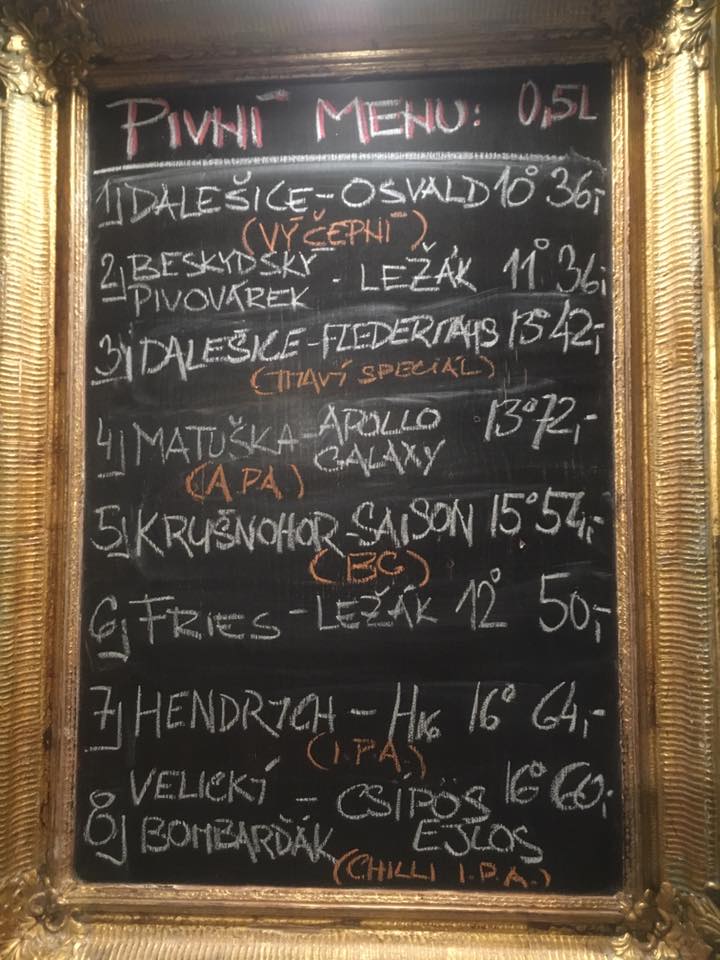 PIVNÍ MENU: 0,5L
1) DALEŠICE - OSVALD 10° 36,-
(VÝČEPNÍ)
2) BESKYDSKÝ PIVOVÁREK - LEŽÁK 11° 36,-
3) DALEŠICE - FLEDERMAUS 13° 42,-
(TMAVÝ SPECIÁL)
4) MATUŠKA - APOLLO GALAXY 13° 72,-
(APA)
5) KRUŠNOHOR - SAISON 15° 54,-
(BG)
6) FRIES - LEŽÁK 12° 50,-
7) HENDRYCH - H16 16° 64,-
(I.P.A.)
8) VELICKÝ BOMBARĎÁK - CSÍPÖS EJLOS 16° 60,-
(CHILLI I.P.A.)